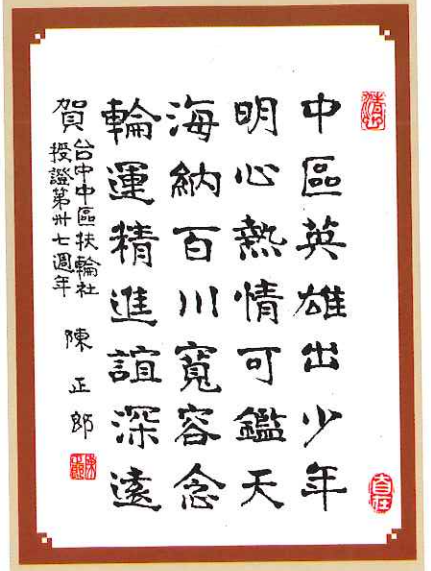 中區英雄出少年
明心熱情可鑑天
海納百川寬容念
輪運精進誼深遠
賀
台中中區扶輪社
授證第卅七週年
陳正郎
自在